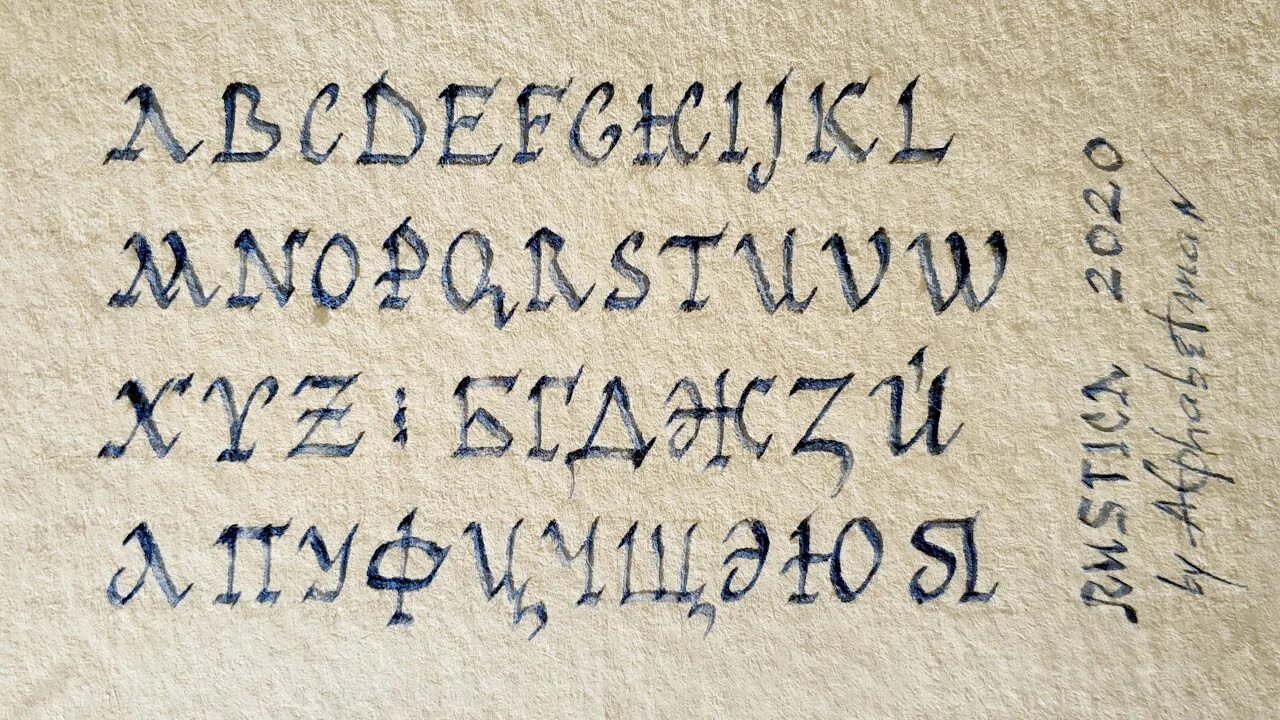 ABCDEFGHIJKL
MNOPQRSTUVW
XYZ : БГДЖЗЙ
ЛПУФЦЧЩЭЮЯ
RUSTICA 2020
by Alphabetman